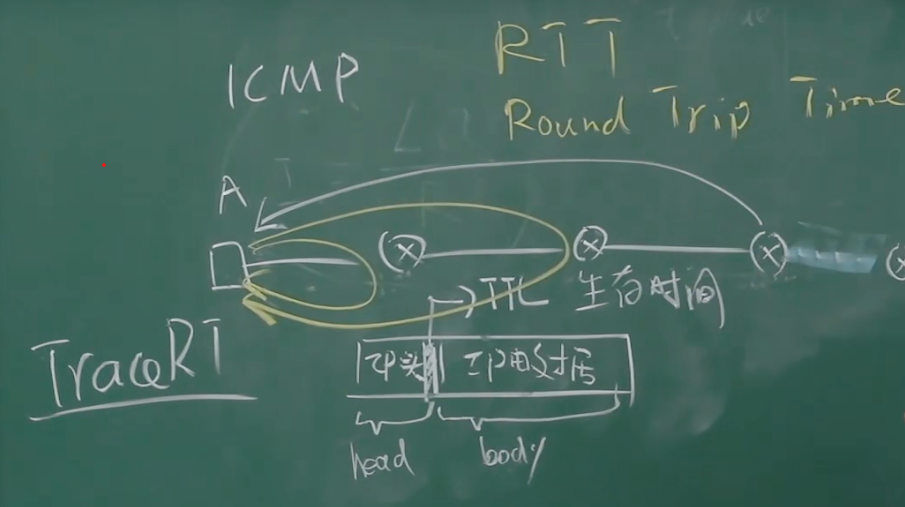 ICMP
RTT
Round Trip Time
A
TTL 生存时间
TraceRT
IP头 IP的数据
head body